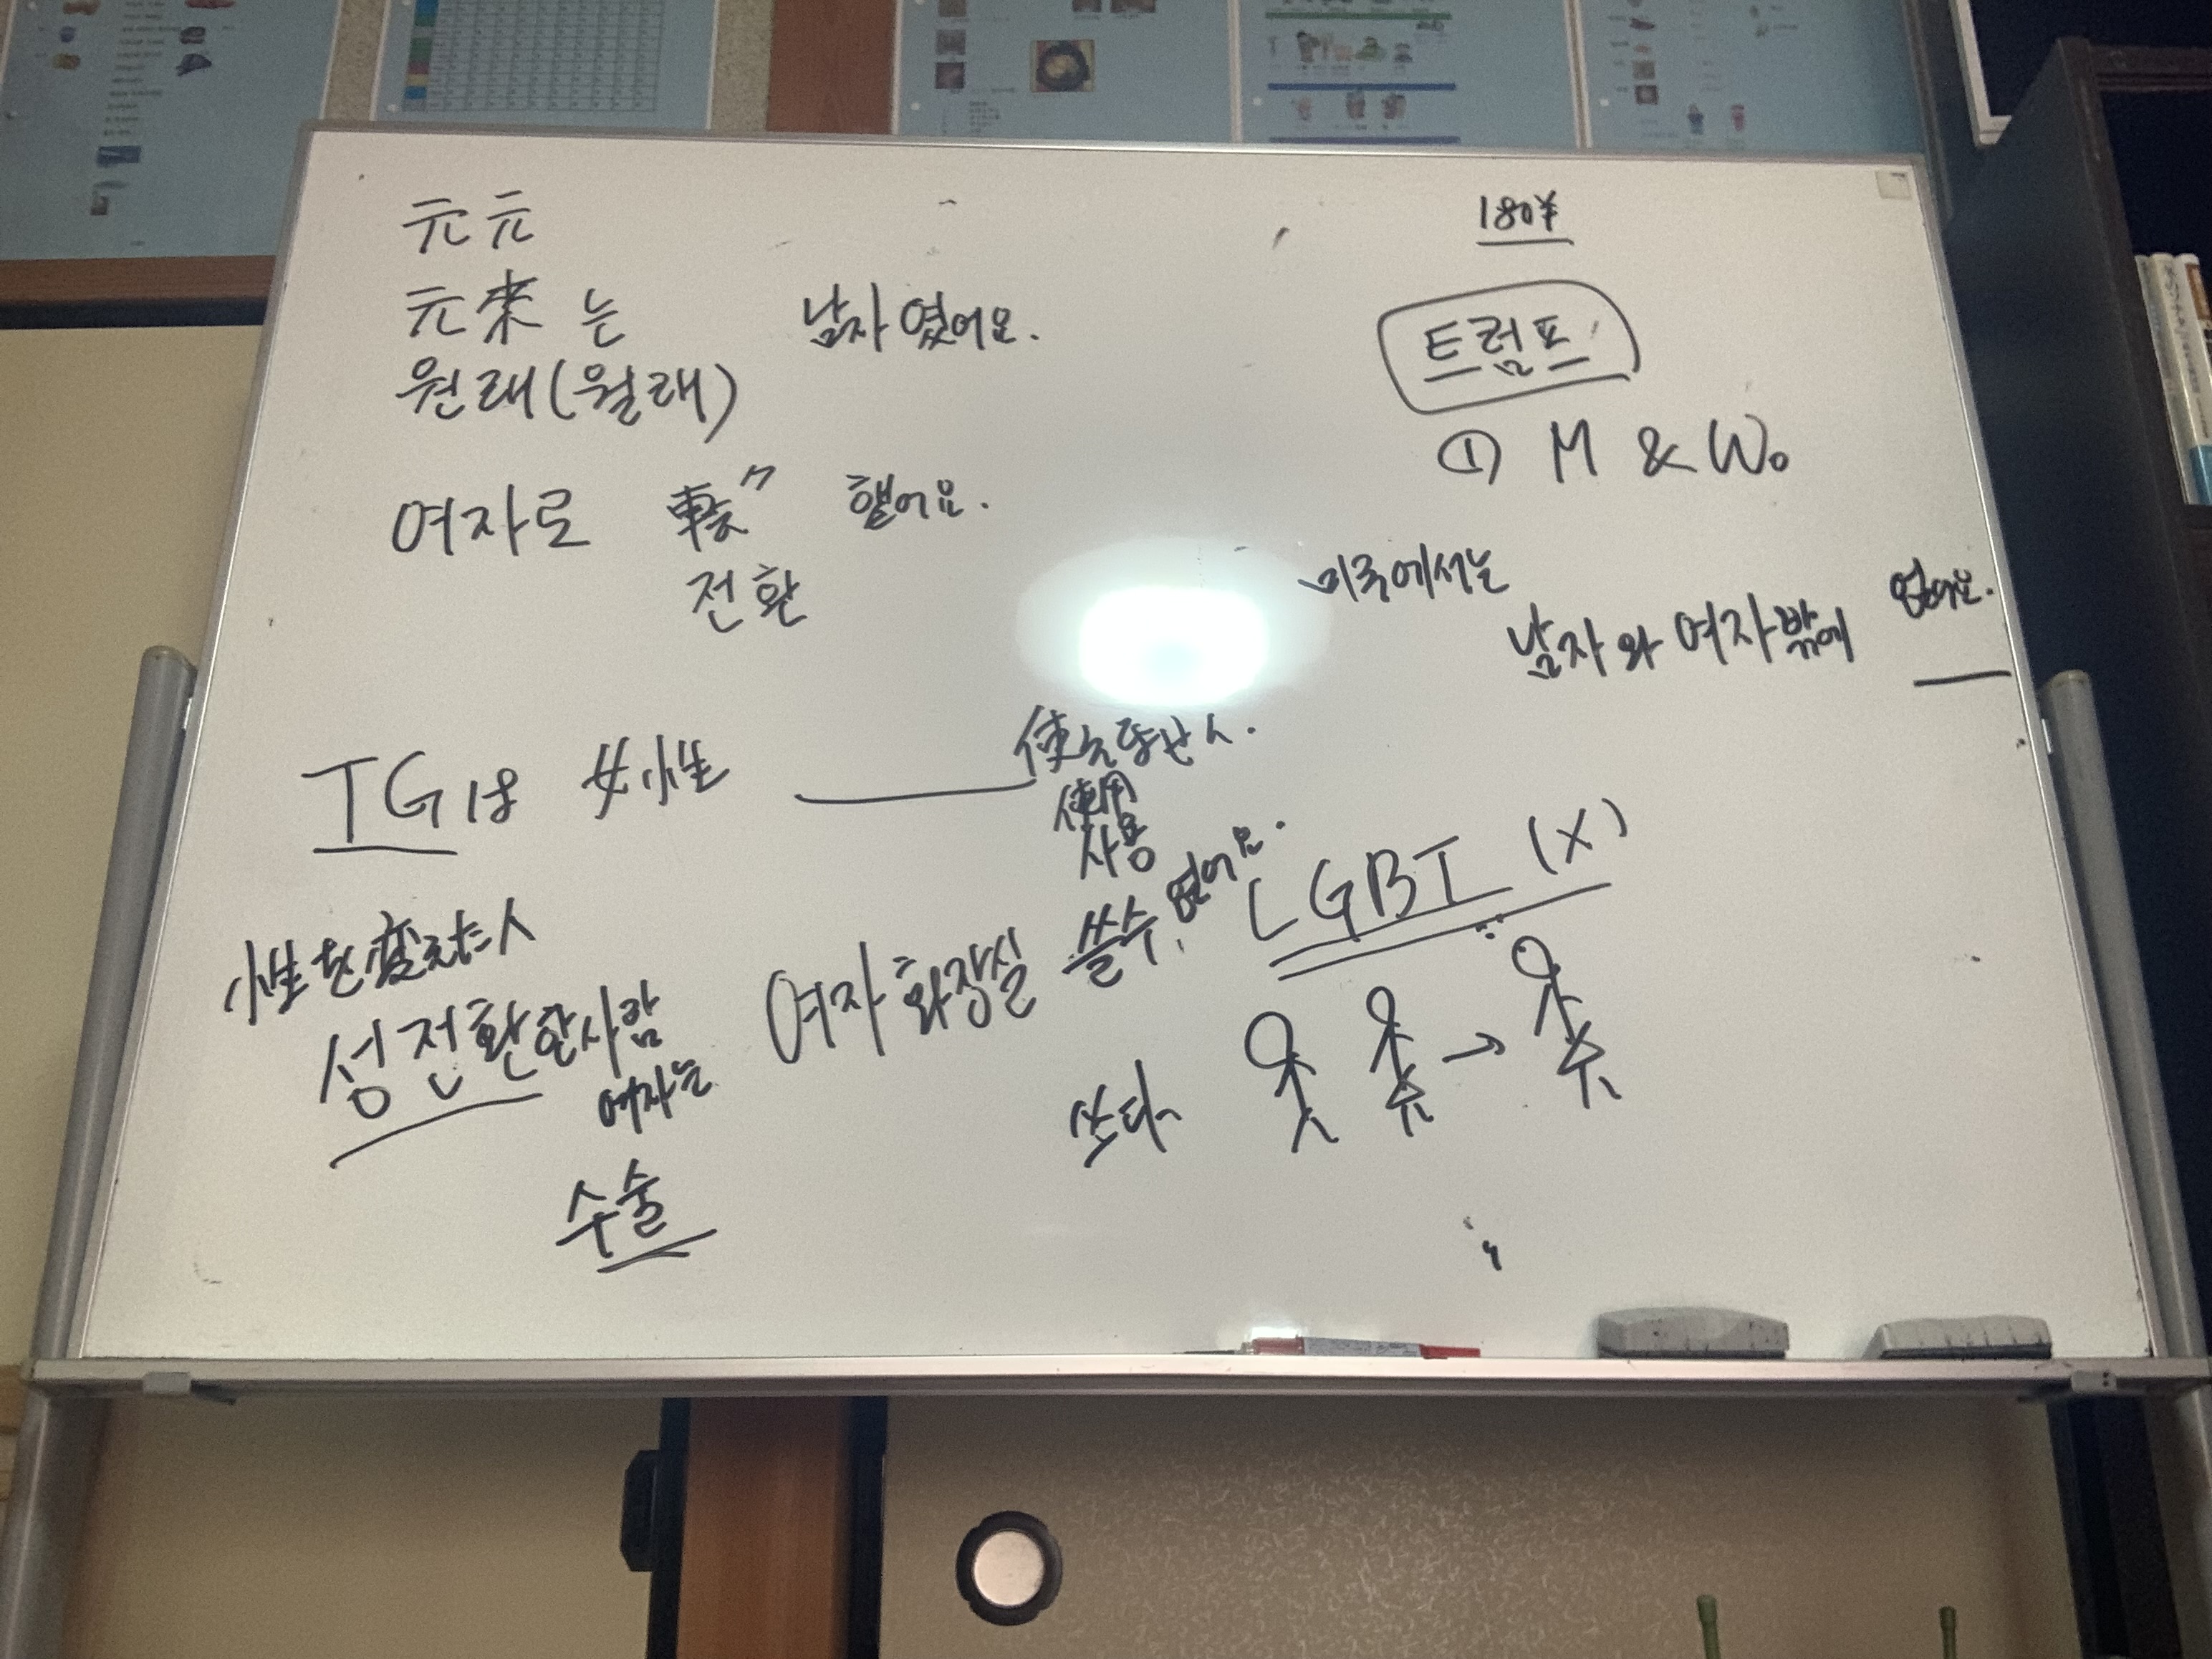 元元
元來는 남자였어요.
원래(월래)
여자로 転〃 했어요.
전환
180¥
트럼프
① M & Wo
미국에서는
남자와 여자밖에 없어요.
TGは 女性
使用
사용
性を変えた人
성전환한사람
여자는
수술
여자 화장실 쓸수 없어요.
쓰다
LGBT (X)